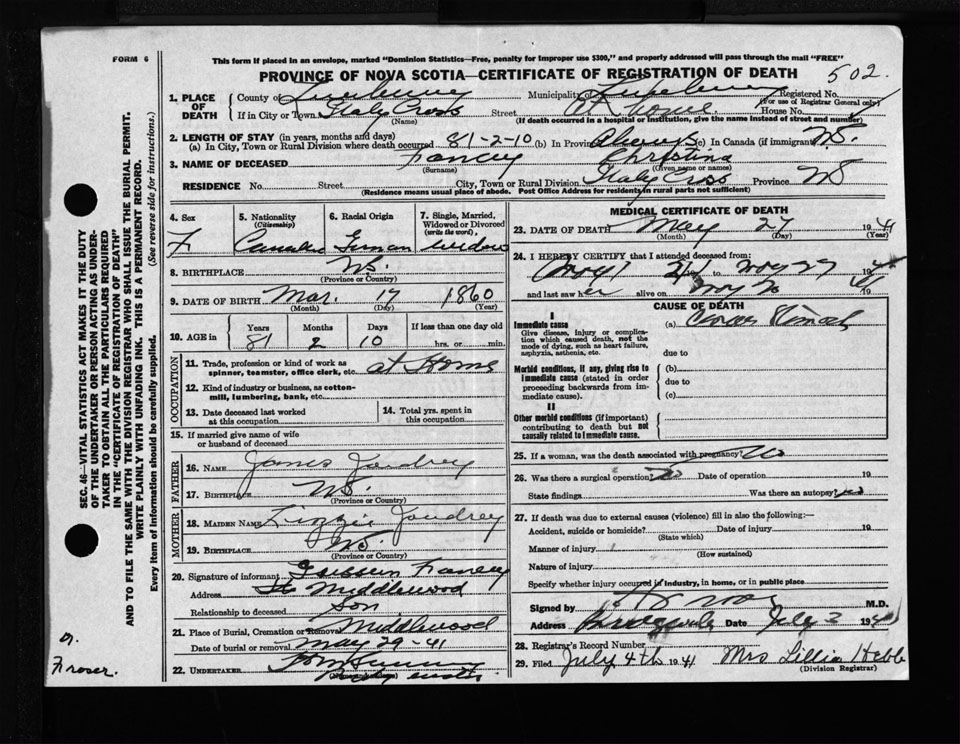 FORM 6
This form if placed in an envelope, marked "Dominion Statistics—Free, penalty for improper use $300," and properly addressed will pass through the mail "FREE"
PROVINCE OF NOVA SCOTIA—CERTIFICATE OF REGISTRATION OF DEATH
502.
1. PLACE OF DEATH
County of Lunenburg Municipality of Lunenburg Registered No.
(For use of Registrar General only)
If in City or Town Italy Cross Street At home House No.
(Name) (If death occurred in a hospital or institution, give the name instead of street and number)
2. LENGTH OF STAY (in years, months and days)
(a) In City, Town or Rural Division where death occurred 81-2-10 (b) In Province Always (c) In Canada (if immigrant) NS.
3. NAME OF DECEASED Francey Christina
(Surname) (Given name or names)
RESIDENCE No. Street City, Town or Rural Division Italy Cross Province NS
(Residence means usual place of abode. Post Office Address for residents in rural parts not sufficient)
4. Sex
F
5. Nationality
(Citizenship)
6. Racial Origin
German
7. Single, Married, Widowed or Divorced
(write the word)
Widow
8. BIRTHPLACE NS.
(Province or Country)
9. DATE OF BIRTH Mar. 17 1860
(Month) (Day) (Year)
10. AGE in
Years Months Days If less than one day old
81 2 10 hrs. or min.
OCCUPATION
11. Trade, profession or kind of work as spinner, teamster, office clerk, etc. at Home
12. Kind of industry or business, as cotton-mill, lumbering, bank, etc.
13. Date deceased last worked at this occupation
14. Total yrs. spent in this occupation
15. If married give name of wife or husband of deceased
FATHER
16. NAME James Joudrey
17. BIRTHPLACE NS.
(Province or Country)
MOTHER
18. MAIDEN NAME Lizzie Joudrey
19. BIRTHPLACE NS.
(Province or Country)
20. Signature of informant Francey
Address Middlewood
Relationship to deceased Son
21. Place of Burial, Cremation or Removal Middlewood
Date of burial or removal May 29-41
22. UNDERTAKER
MEDICAL CERTIFICATE OF DEATH
23. DATE OF DEATH May 27 1941
(Month) (Day) (Year)
24. I HEREBY CERTIFY that I attended deceased from:
and last saw her alive on
CAUSE OF DEATH
I
Immediate cause
Give disease, injury or complication which caused death, not the mode of dying, such as heart failure, asphyxia, asthenia, etc.
(a) Cancer Stomach
due to
Morbid conditions, if any, giving rise to immediate cause (stated in order proceeding backwards from immediate cause).
(b)
due to
(c)
II
Other morbid conditions (if important) contributing to death but not causally related to immediate cause.
25. If a woman, was the death associated with pregnancy? No
26. Was there a surgical operation? No Date of operation 19
State findings Was there an autopsy? No
27. If death was due to external causes (violence) fill in also the following:—
Accident, suicide or homicide? Date of injury 19
(State which)
Manner of injury
(How sustained)
Nature of injury
Specify whether injury occurred in industry, in home, or in public place
Signed by M.D.
Address Bridgewater Date July 3 194
28. Registry's Record Number
29. Filed July 4th 1941 Mrs Lillian Hebb
(Division Registrar)
SEC. 46—VITAL STATISTICS ACT MAKES IT THE DUTY
OF THE UNDERTAKER OR PERSON ACTING AS UNDER-
TAKER TO OBTAIN ALL THE PARTICULARS REQUIRED
IN THE "CERTIFICATE OF REGISTRATION OF DEATH"
AND TO FILE THE SAME WITH THE DIVISION REGISTRAR WHO SHALL ISSUE THE BURIAL PERMIT.
WRITE PLAINLY WITH UNFADING INK. THIS IS A PERMANENT RECORD.
Every item of information should be carefully supplied. (See reverse side for instructions.)